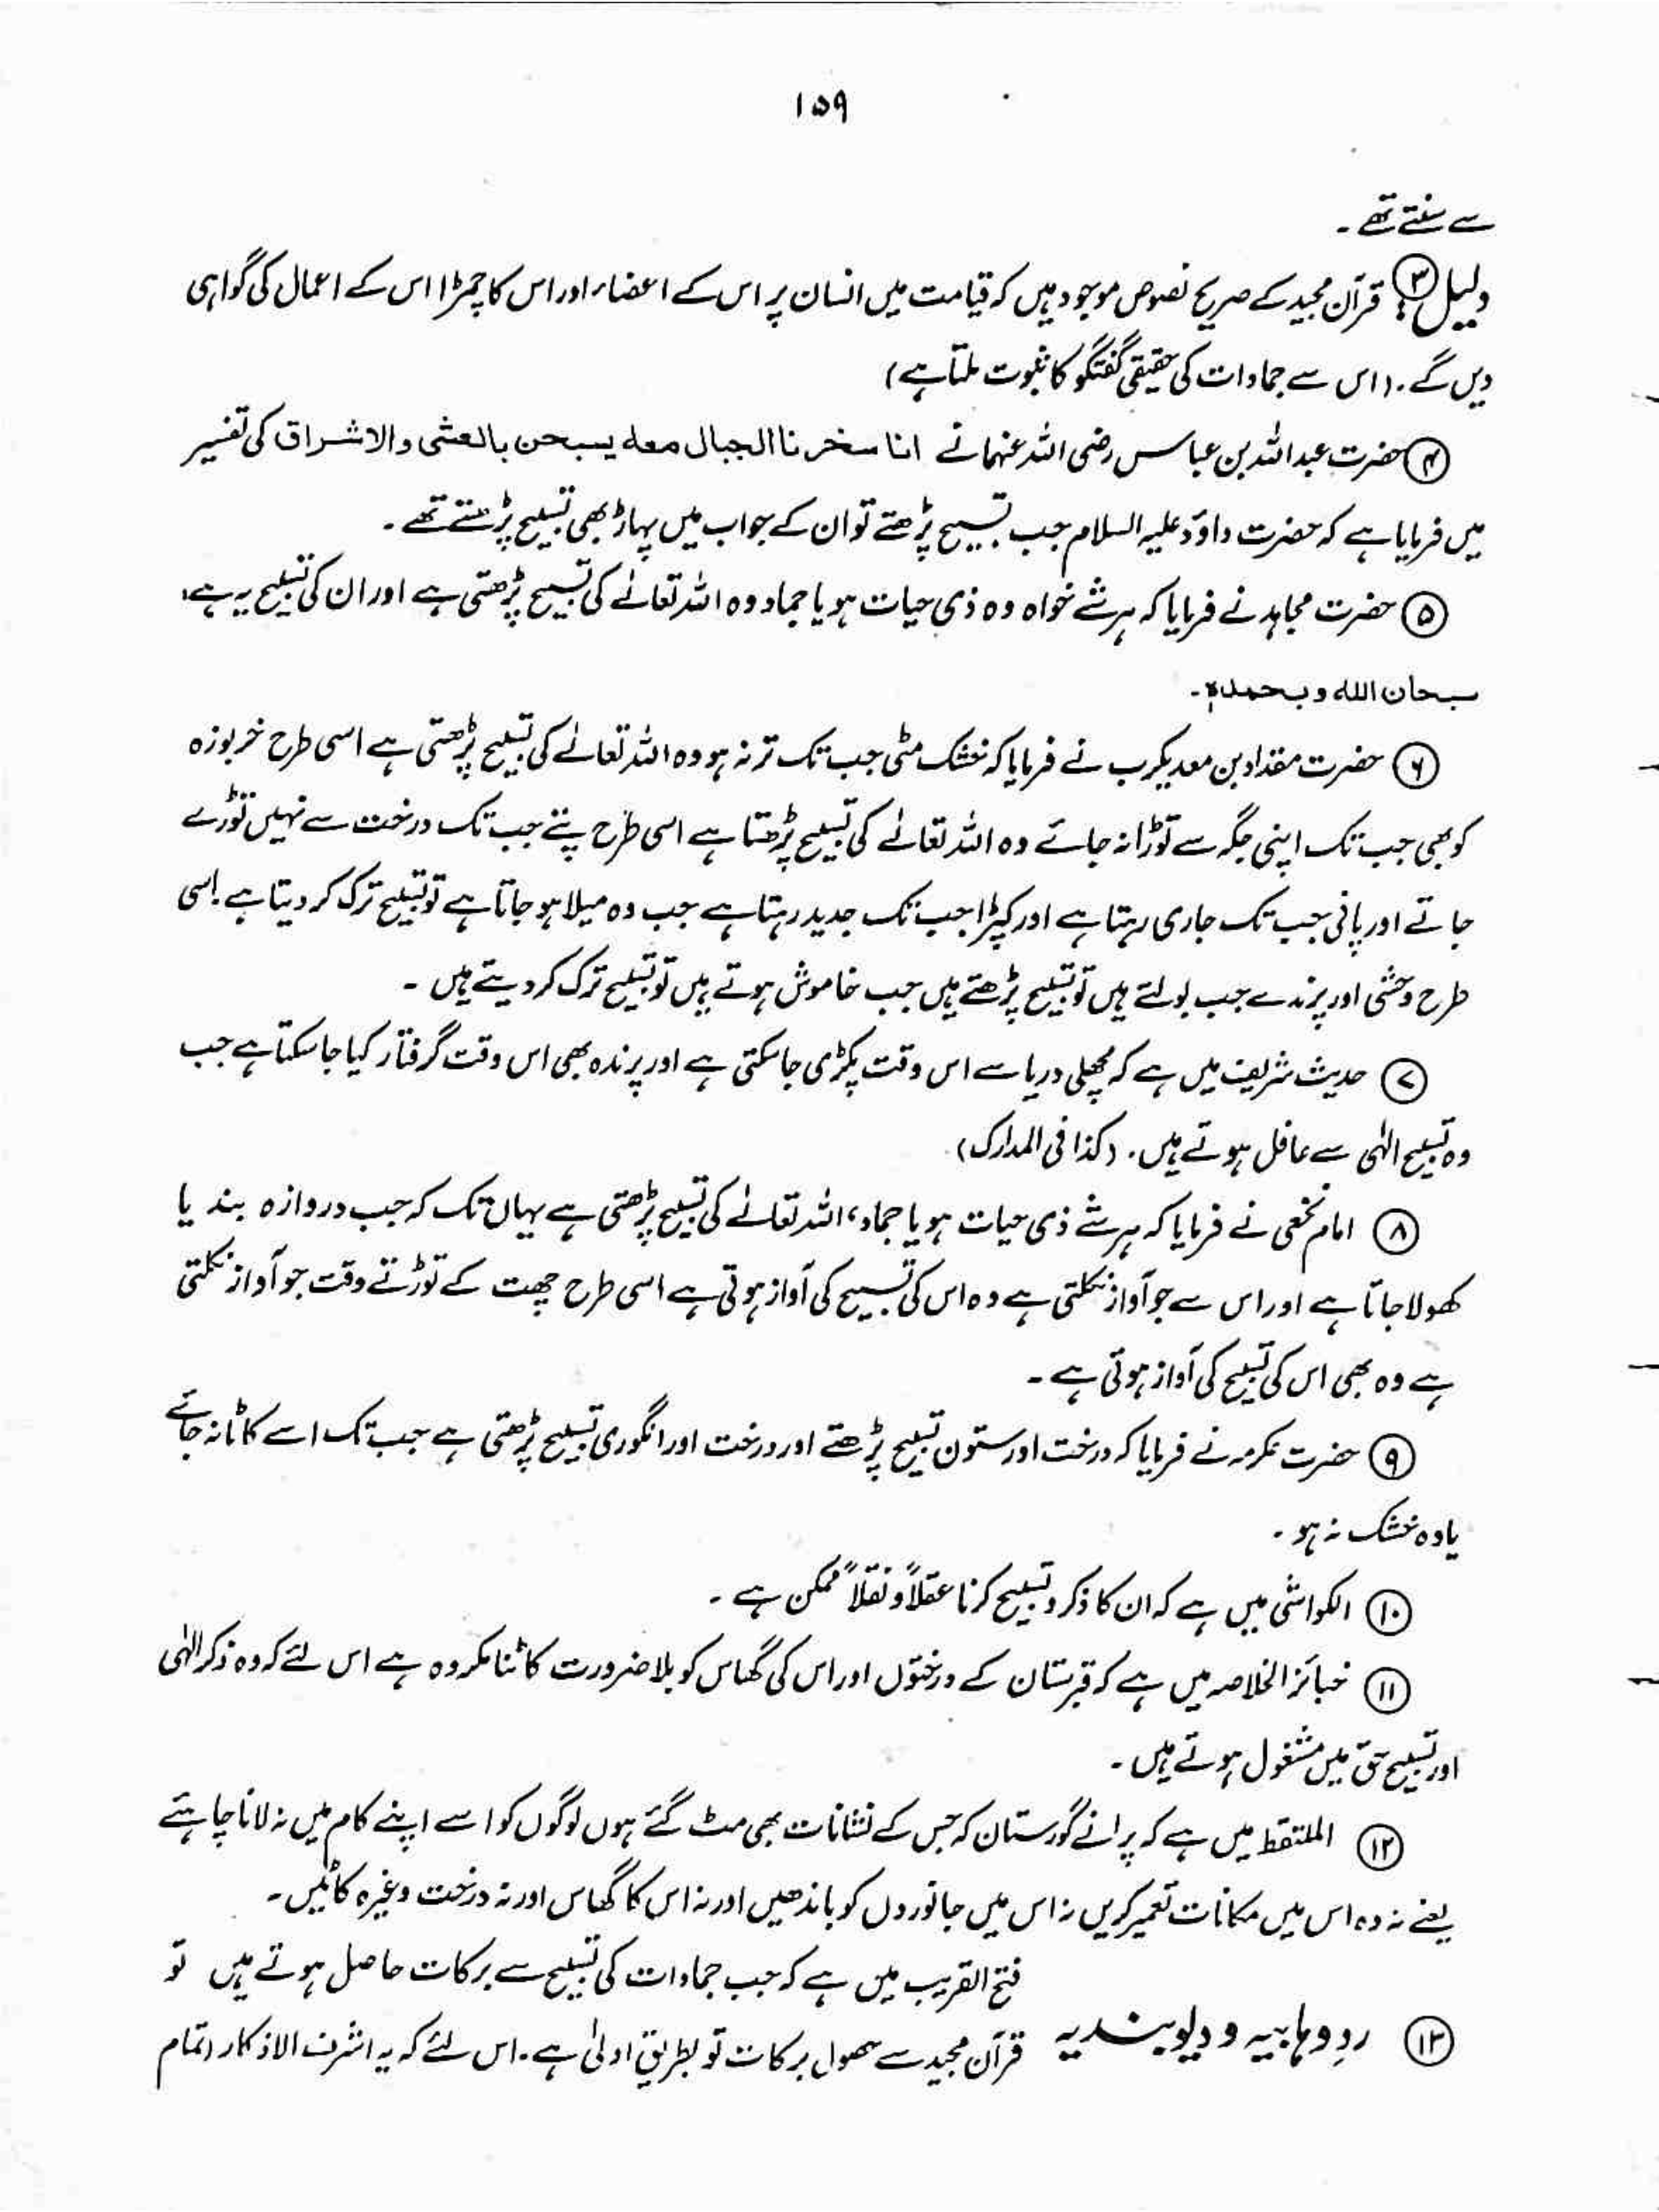 ۱۵۹
سے سنتے تھے ۔
دلیل ۳: قرآن مجید کے صریح نصوص موجود ہیں کہ قیامت میں انسان پر اس کے اعضاء اور اس کا چمڑا اس کے اعمال کی گواہی
دیں گے ۔ (اس سے جمادات کی حقیقی گفتگو کا ثبوت ملتا ہے)
۴ حضرت عبداللہ بن عباس رضی اللہ عنہما نے انا سخرنا الجبال معہ یسبحن بالعشی والاشراق کی تفسیر
میں فرمایا ہے کہ حضرت داؤد علیہ السلام جب تسبیح پڑھتے تو ان کے جواب میں پہاڑ بھی تسبیح پڑھتے تھے ۔
۵ حضرت مجاہد نے فرمایا کہ ہر شے خواہ وہ ذی حیات ہو یا جماد وہ اللہ تعالےٰ کی تسبیح پڑھتی ہے اور ان کی تسبیح یہ ہے،
سبحان اللہ وبحمدہ ۔
۶ حضرت مقداد بن معدیکرب نے فرمایا کہ خشک مٹی جب تک تر نہ ہو وہ اللہ تعالےٰ کی تسبیح پڑھتی ہے اسی طرح خربوزہ
کو بھی جب تک اپنی جگہ سے توڑا نہ جائے وہ اللہ تعالےٰ کی تسبیح پڑھتا ہے اسی طرح پتے جب تک درخت سے نہیں توڑے
جاتے اور پانی جب تک جاری رہتا ہے اور کپڑا جب تک جدید رہتا ہے جب وہ میلا ہو جاتا ہے تو تسبیح ترک کر دیتا ہے ۔ اسی
طرح وحشی اور پرندے جب بولتے ہیں تو تسبیح پڑھتے ہیں جب خاموش ہوتے ہیں تو تسبیح ترک کر دیتے ہیں ۔
۷ حدیث شریف میں ہے کہ مچھلی دریا سے اس وقت پکڑی جا سکتی ہے اور پرندہ بھی اس وقت گرفتار کیا جا سکتا ہے جب
وہ تسبیح الٰہی سے غافل ہوتے ہیں ۔ (کذا فی المدارک)
۸ امام نخعی نے فرمایا کہ ہر شے ذی حیات ہو یا جماد، اللہ تعالےٰ کی تسبیح پڑھتی ہے یہاں تک کہ جب دروازہ بند یا
کھولا جاتا ہے اور اس سے جو آواز نکلتی ہے وہ اس کی تسبیح کی آواز ہوتی ہے اسی طرح چھت کے توڑتے وقت جو آواز نکلتی
ہے وہ بھی اس کی تسبیح کی آواز ہوتی ہے ۔
۹ حضرت عکرمہ نے فرمایا کہ درخت اور ستون تسبیح پڑھتے اور درخت اور انگوری تسبیح پڑھتی ہے جب تک اسے کاٹا نہ جائے
یا وہ خشک نہ ہو ۔
۱۰ الکواشی میں ہے کہ ان کا ذکر و تسبیح کرنا عقلاً و نقلاً ممکن ہے ۔
۱۱ خبائز الخلاصہ میں ہے کہ قبرستان کے درختوں اور اس کی گھاس کو بلا ضرورت کاٹنا مکروہ ہے اس لئے کہ وہ ذکر الٰہی
اور تسبیح حق میں مشغول ہوتے ہیں ۔
۱۲ الملتقط میں ہے کہ پرانے گورستان کہ جس کے نشانات بھی مٹ گئے ہوں لوگوں کو اسے اپنے کام میں نہ لانا چاہئے
یعنے نہ وہ اس میں مکانات تعمیر کریں نہ اس میں جانوروں کو باندھیں اور نہ اس کا گھاس اور نہ درخت وغیرہ کاٹیں ۔
فتح القریب میں ہے کہ جب جمادات کی تسبیح سے برکات حاصل ہوتے ہیں تو
۱۳ ردِ وہابیہ و دیوبندیہ
قرآن مجید سے حصول برکات تو بطریق اولیٰ ہے ۔ اس لئے کہ یہ اشرف الاذکار (تمام